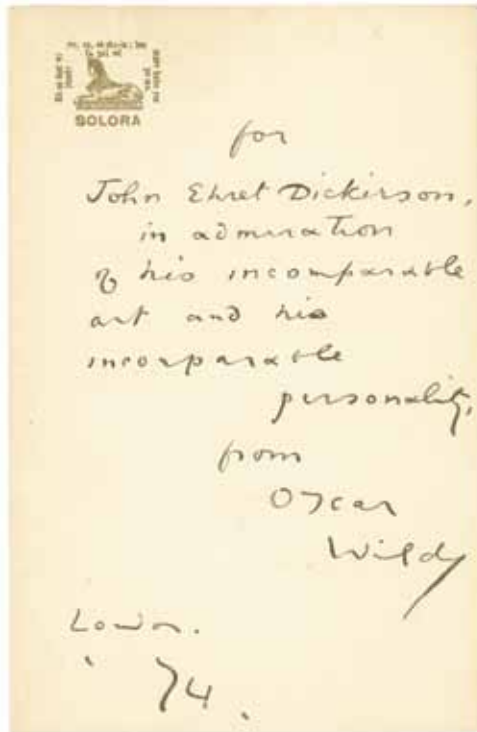 SOLORA
for
John Ehret Dickerson,
in admiration
of his incomparable
art and his
incomparable
personality,
from
Oscar
Wilde
London.
'94.